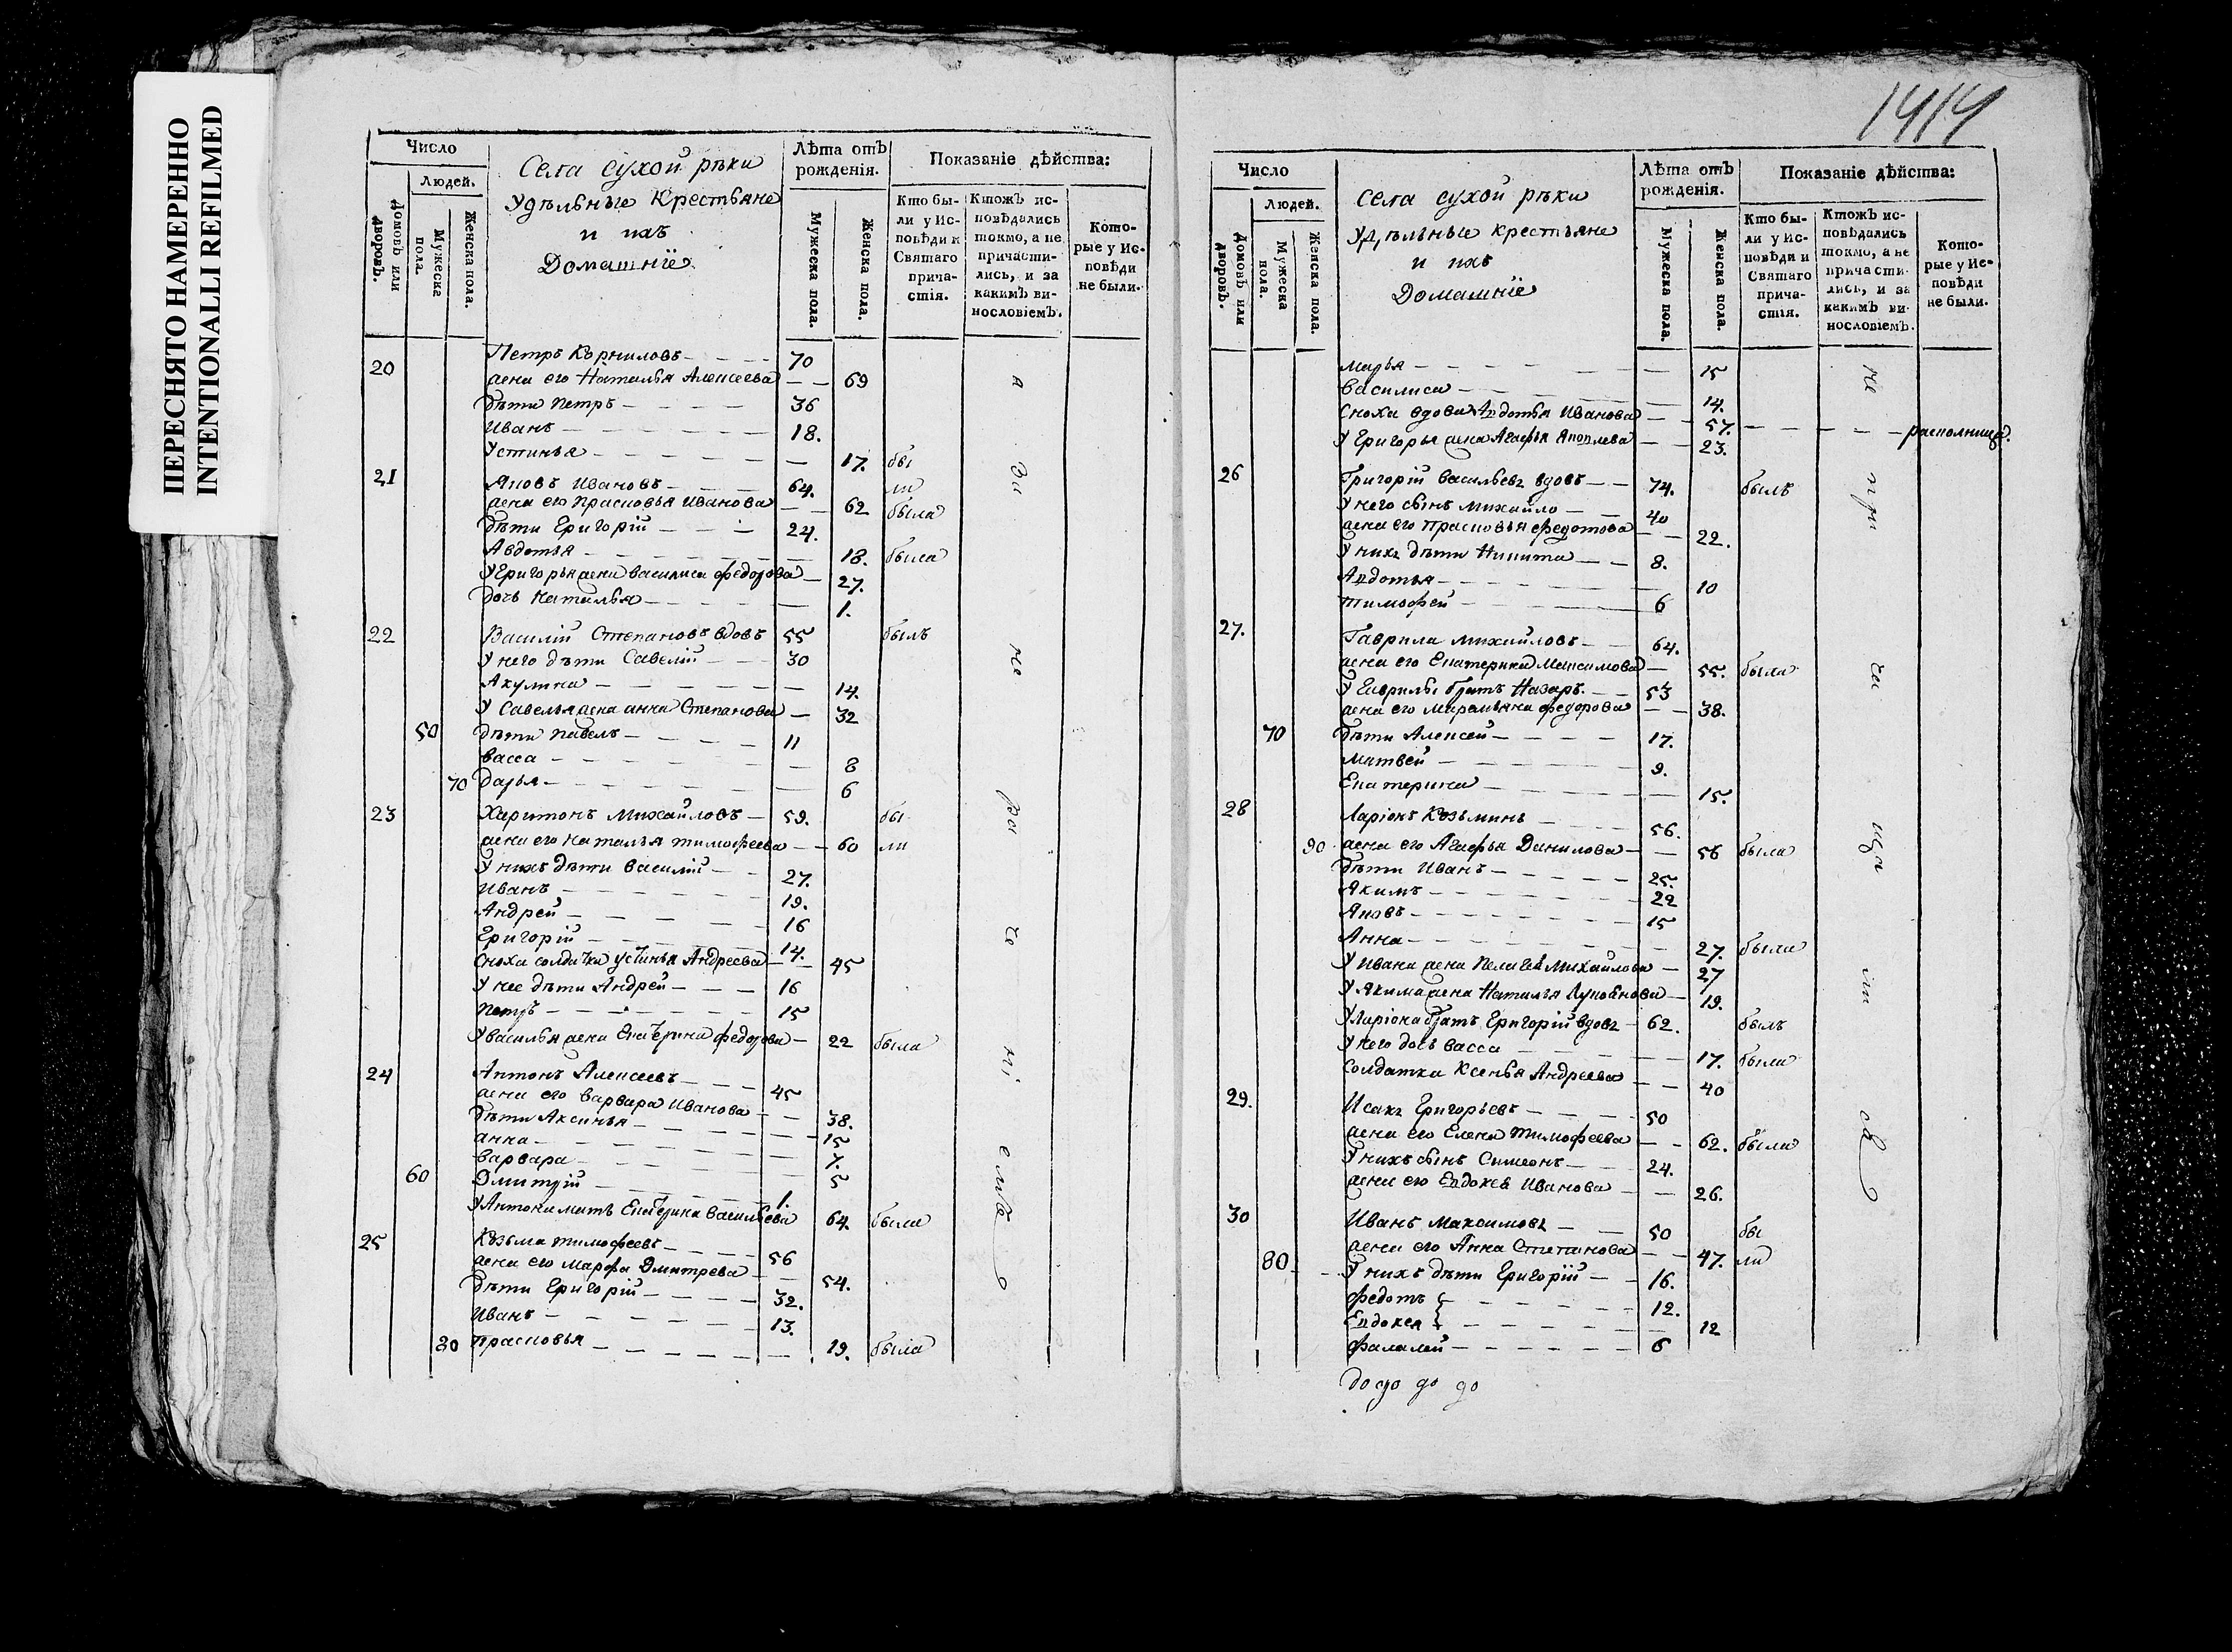 ПЕРЕСНЯТО НАМЕРЕННО
INTENTIONALLI REFILMED
Число
Людей.
Домовъ или дворовъ.
Мужеска пола.
Женска пола.
Села сухой рѣки
Удѣльные Крестьяне
и ихъ
Домашніе
Лѣта отъ рожденія.
Мужеска пола.
Женска пола.
Показаніе дѣйства:
Кто бы-
ли у Ис-
повѣди и
Святаго
прича-
стія.
Ктожъ ис-
повѣдались
токмо, а не
причасти-
лись, и за
какимъ ви-
нословіемъ.
Кото-
рые у Ис-
повѣди
не были.
20 Петръ Корниловъ 70
жена его Наталья Алексеева 69
дѣти Петръ 36
Иванъ 18.
Устинья 17. бы
21 Яковъ Ивановъ 64. ли
жена его Прасковья Иванова 62 была
дѣти Григорій 24.
Авдотья 18. была
У Григорья жена Василиса Федорова 27.
дочь Наталья 1.
22 Василій Степановъ вдовъ 55 былъ
У него дѣти Савелій 30
Акулина 14.
У Савелья жена Анна Степанова 32
50 дѣти Павелъ 11
Васса 8
70 Дарья 6
23 Харитонъ Михайловъ 59. бы
жена его Наталья Тимофеева 60 ли
У нихъ дѣти Василій 27.
Иванъ 19.
Андрей 16
Григорій 14.
Сноха солдатка Устинья Андреева 45
У нее дѣти Андрей 16
Петръ 15
У Василья жена Екатерина Федорова 22 была
24 Антонъ Алексеевъ 45
жена его Варвара Иванова 38.
дѣти Аксинья 15
Анна 7.
Варвара 5
60 Дмитрій 1.
У Антона мать Екатерина Васильева 64. была
25 Козьма Тимофеевъ 56
жена его Марфа Дмитрева 54.
дѣти Григорій 32.
Иванъ 13.
80 Прасковья 19. была
1414
Число
Людей.
Домовъ или дворовъ.
Мужеска пола.
Женска пола.
Села сухой рѣки
Удѣльные крестьяне
и ихъ
Домашніе
Лѣта отъ рожденія.
Мужеска пола.
Женска пола.
Показаніе дѣйства:
Кто бы-
ли у Ис-
повѣди и
Святаго
прича-
стія.
Ктож ис-
повѣдались
токмо, а не
причасти-
лись, и за
какимъ ви-
нословіемъ.
Кото-
рые у Ис-
повѣди
не были.
Марья 15
Василиса 14.
Сноха вдова Авдотья Иванова 57. раскольница.
У Григорья жена Агафья Яковлева 23.
26 Григорій Васильевъ вдовъ 74. былъ
У него сынъ Михайло 40
жена его Прасковья Федотова 22.
У нихъ дѣти Никита 8.
Авдотья 10
Тимофей 6
27. Гаврила Михайловъ 64.
жена его Екатерина Максимова 55. была
У Гаврилы братъ Назаръ 53
жена его Маремьяна Федорова 38.
70 дѣти Алексей 17.
Матвей 9.
Екатерина 15.
28 Ларіонъ Козьминъ 56.
90 жена его Агафья Данилова 56 была
дѣти Иванъ 25.
Якимъ 22
Яковъ 15
Анна 27. была
У Ивана жена Пелагея Михайлова 27
У Якима жена Наталья Лукоянова 19.
У Ларіона братъ Григорій вдовъ 62. былъ
У него дочь Васса 17. была
Солдатка Ксенья Андреева 40
29. Исакъ Григорьевъ 50
жена его Елена Тимофеева 62. была
У нихъ сынъ Симеонъ 24.
жена его Евдокея Иванова 26.
30 Иванъ Максимовъ 50 бы
жена его Анна Степанова 47. ли
80 У нихъ дѣти Григорій 16.
Федотъ 12.
Евдокея 12
Фалалей 6